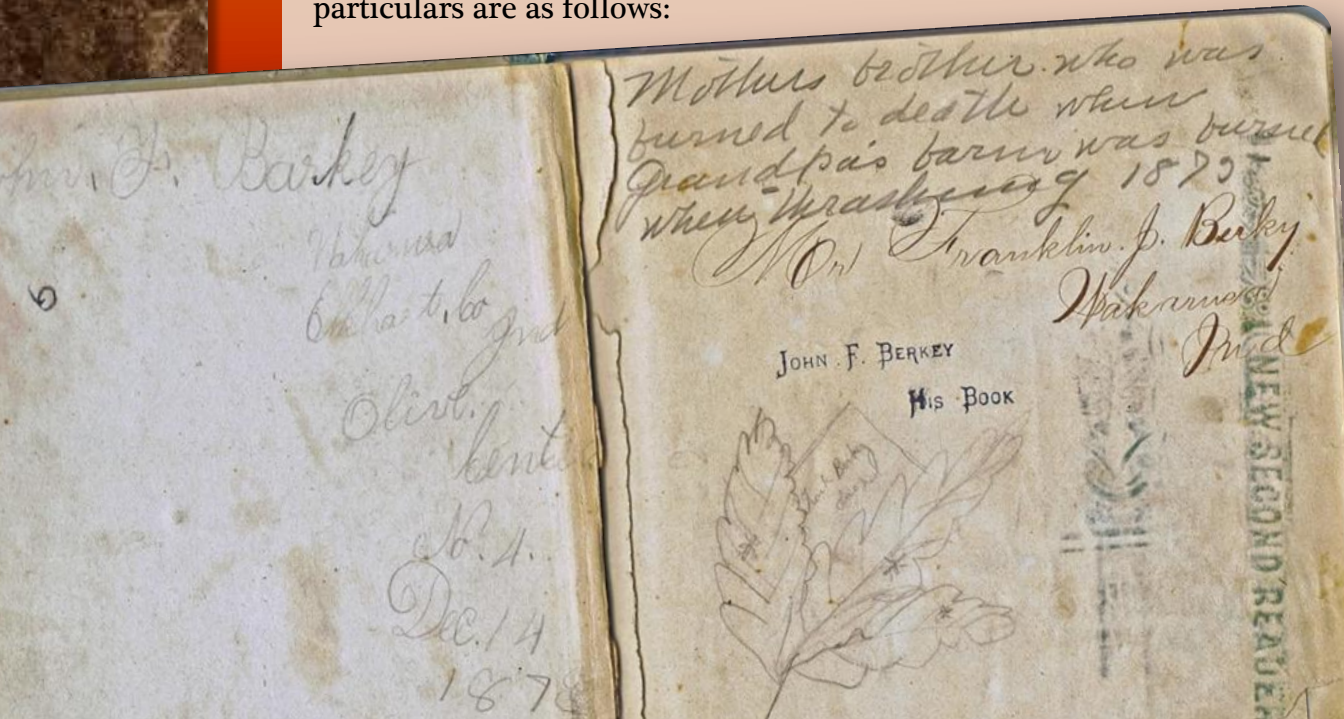 particulars are as follows:
F. Barkey
Elkhart, Co
Ind
Olive.
No. 4.
Dec. 14
187
6
Mothers brother who was
burned to death when
Grandpa's barn was burned
when thrashing 1879
Mr Franklin. J. Berky
Wakarusa
Ind
JOHN F. BERKEY
HIS BOOK
NEW SECOND READER